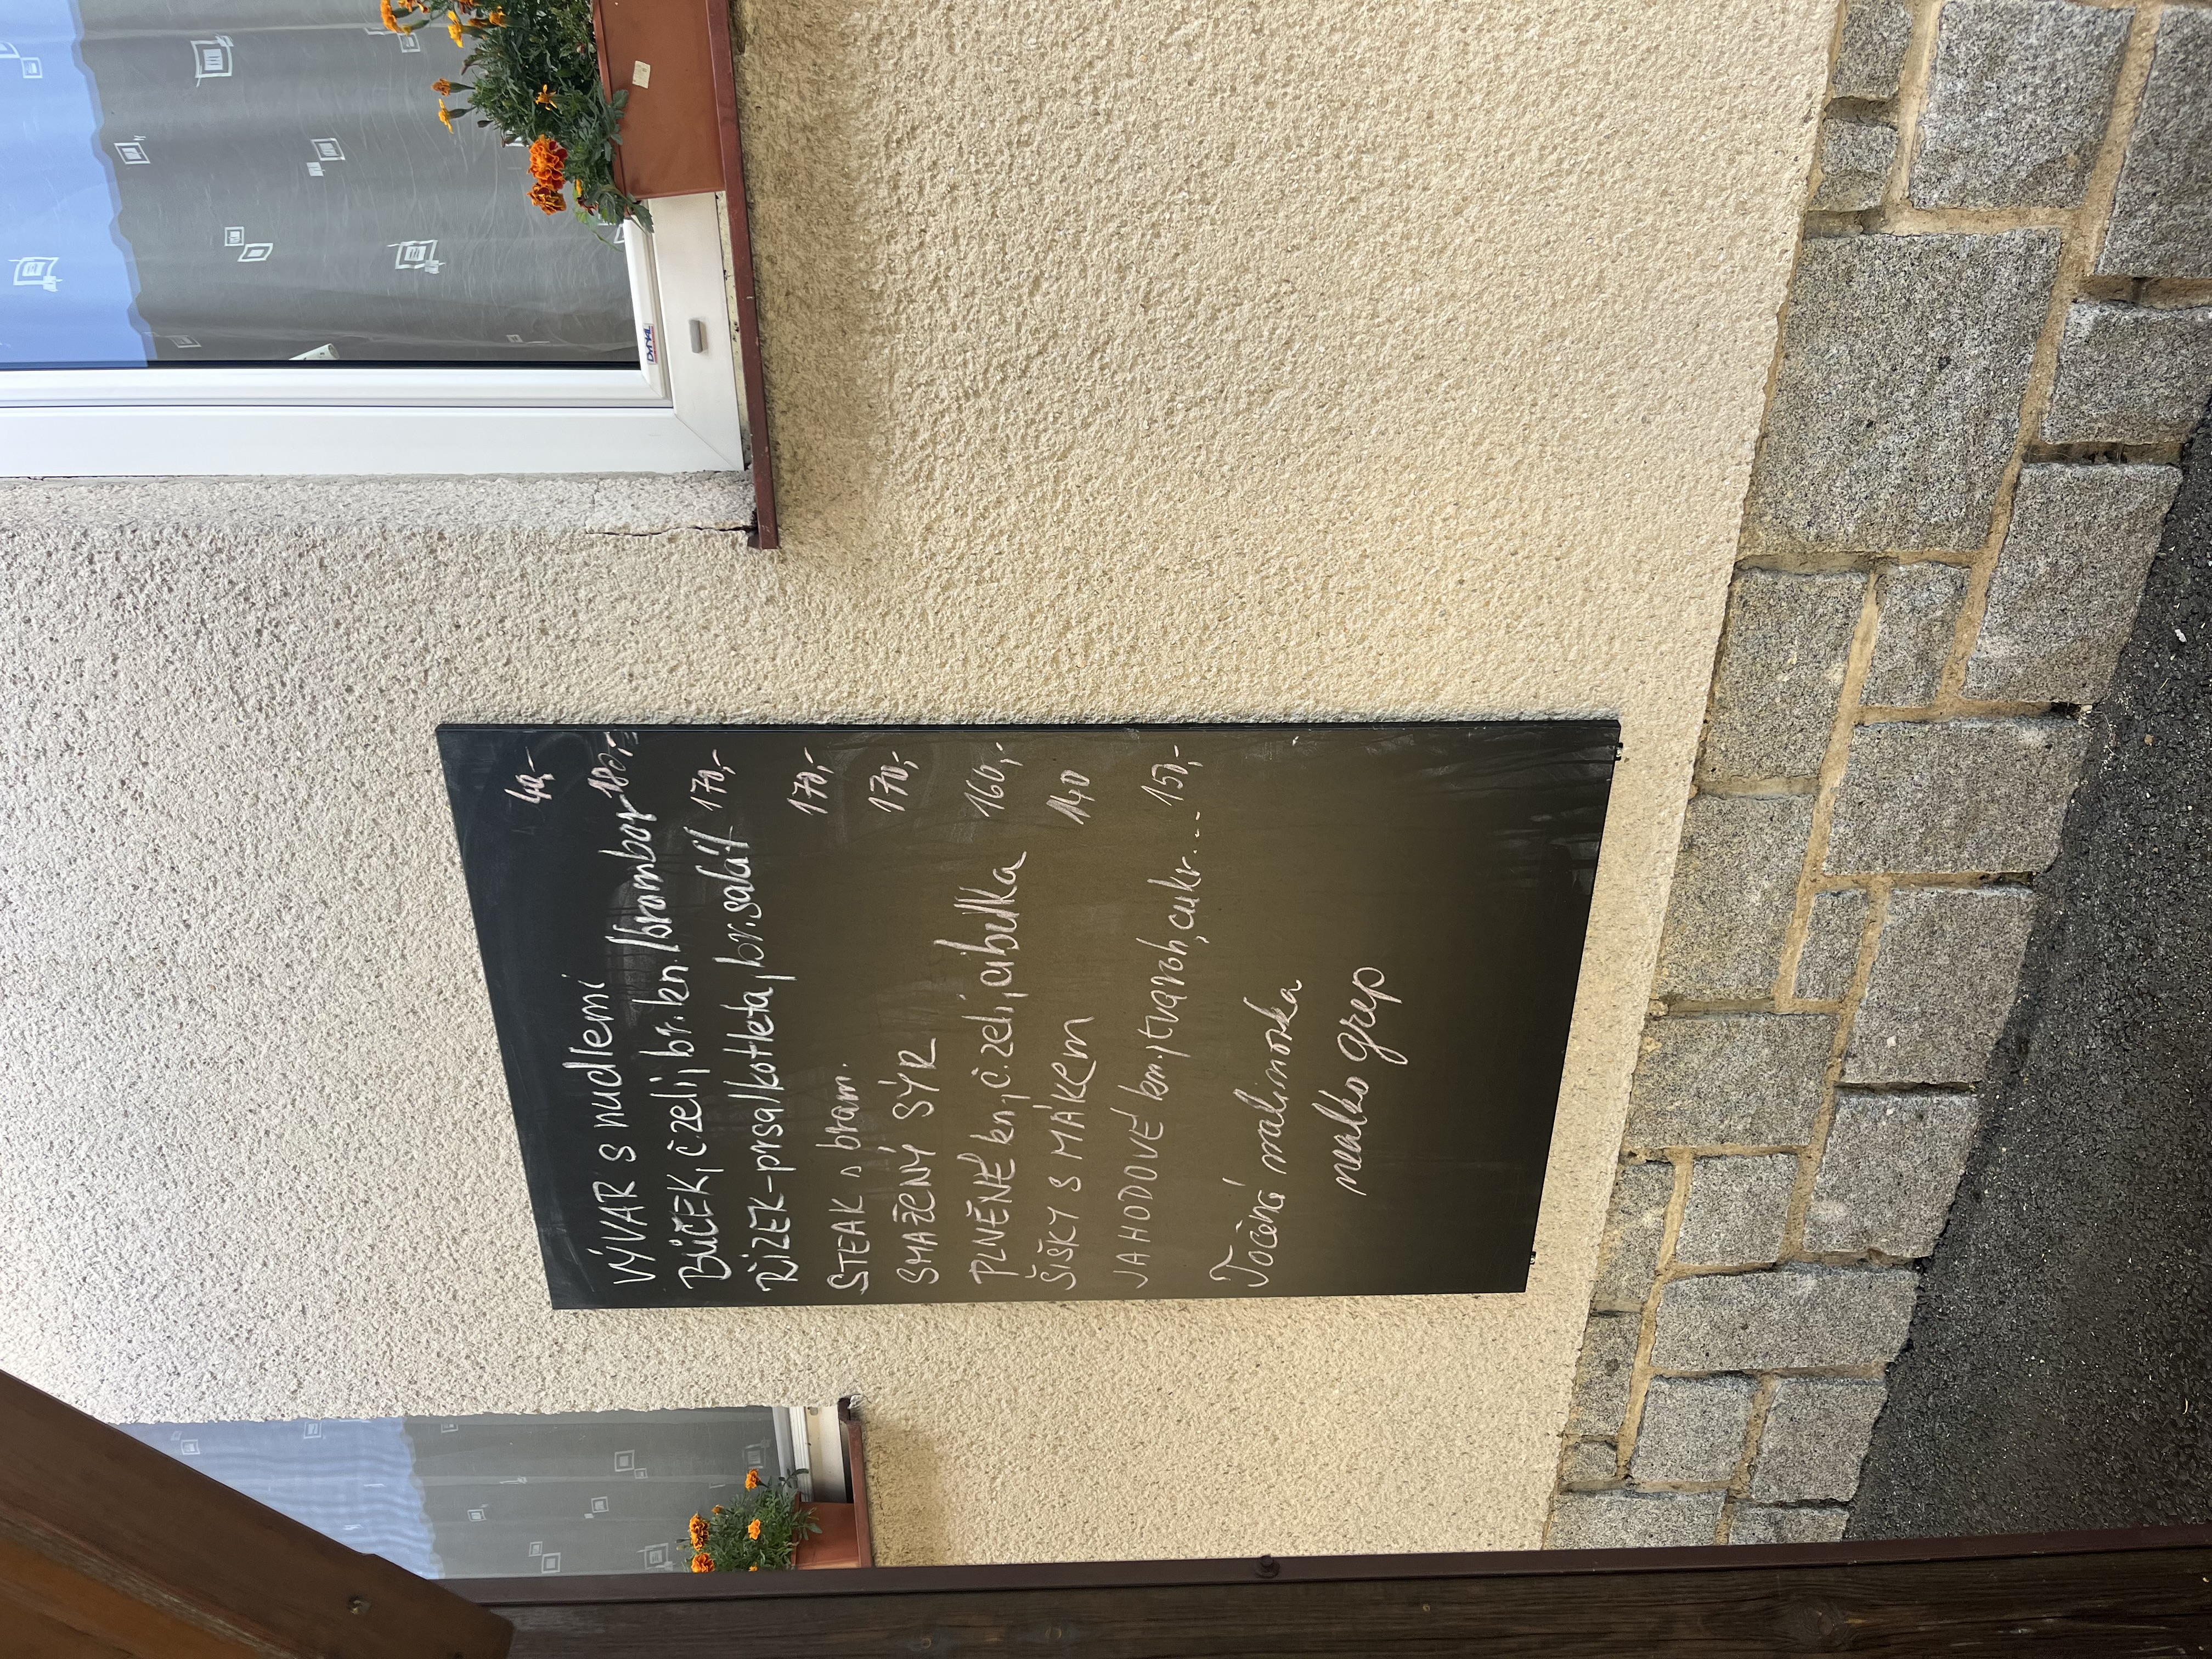 VÝVAR S nudlemi 40,-
BŮČEK, č.zelí, br.kn./brambor 180,-
ŘÍZEK-prsa/kotleta, br.salát 170,-
STEAK s bram. 170,-
SMAŽENÝ SÝR 170,-
PLNĚNÉ kn, č.zelí, cibulka 160,-
ŠIŠKY S MÁKEM 140
JAHODOVÉ kn., tvaroh, cukr... 150,-
Točená malinovka
nealko grep